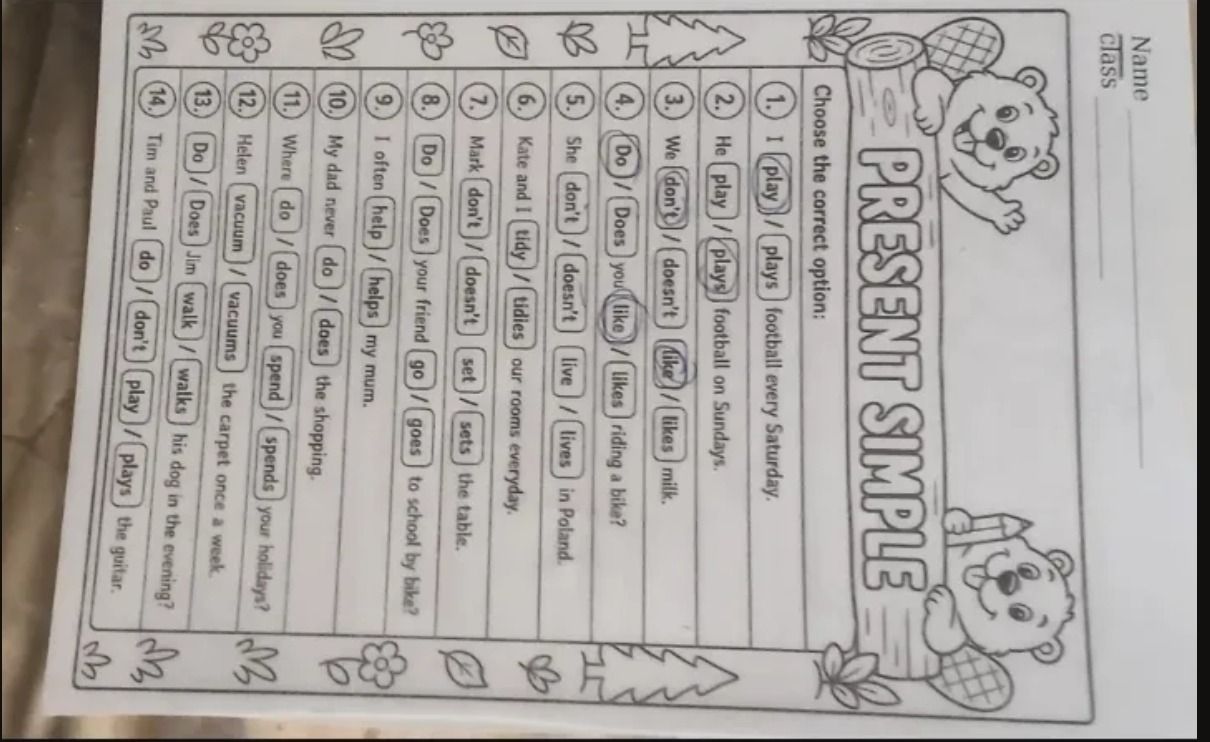 Name
class
PRESENT SIMPLE
Choose the correct option:
1. I play / plays football every Saturday.
2. He play / plays football on Sundays.
3. We don't / doesn't like / likes milk.
4. Do / Does you like / likes riding a bike?
5. She don't / doesn't live / lives in Poland.
6. Kate and I tidy / tidies our rooms everyday.
7. Mark don't / doesn't set / sets the table.
8. Do / Does your friend go / goes to school by bike?
9. I often help / helps my mum.
10. My dad never do / does the shopping.
11. Where do / does you spend / spends your holidays?
12. Helen vacuum / vacuums the carpet once a week.
13. Do / Does Jim walk / walks his dog in the evening?
14. Tim and Paul do / don't play / plays the guitar.